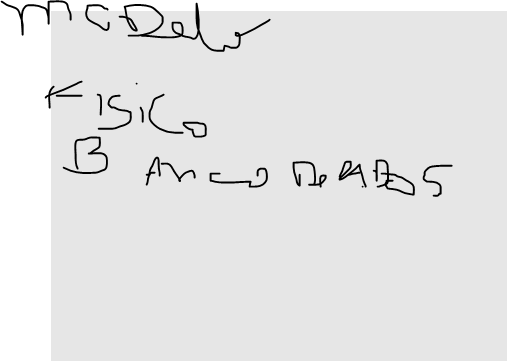 mCDelo
FISiCo
B Anco De DADos